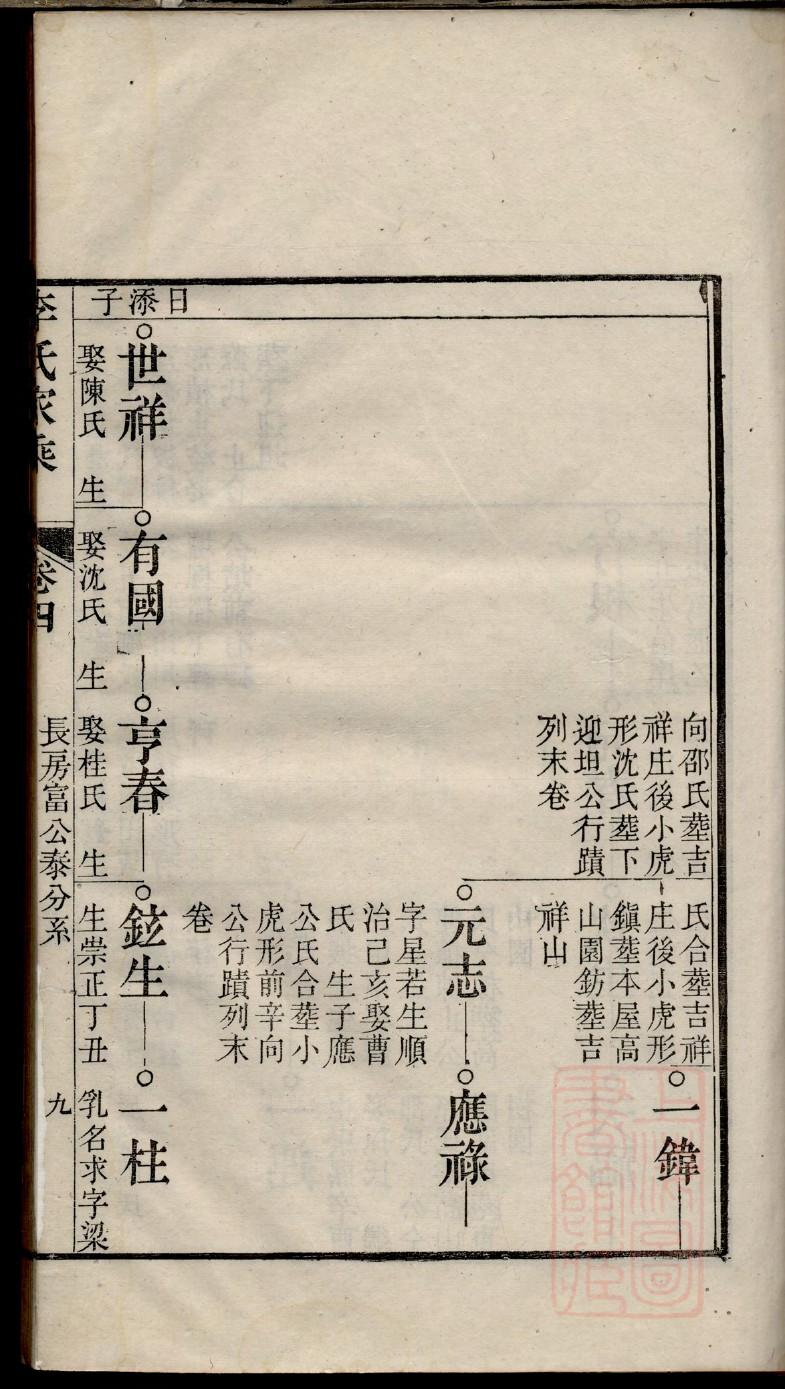 向邵氏塟吉
祥庄後小虎
形沈氏塟下
迎坦公行蹟
列末卷
氏合塟吉祥
庄後小虎形
鎭塟本屋高
山園鈁塟吉
祥山
一鍏
元志
字星若生順
治己亥娶曹
氏 生子應
公氏合塟小
虎形前辛向
公行蹟列末
卷
應祿
日添子
世祥
娶陳氏 生
有國
娶沈氏 生
亨春
娶桂氏 生
鉉生
生崇正丁丑
一柱
乳名求字梁
李氏家乘
卷四
長房富公泰分系
九